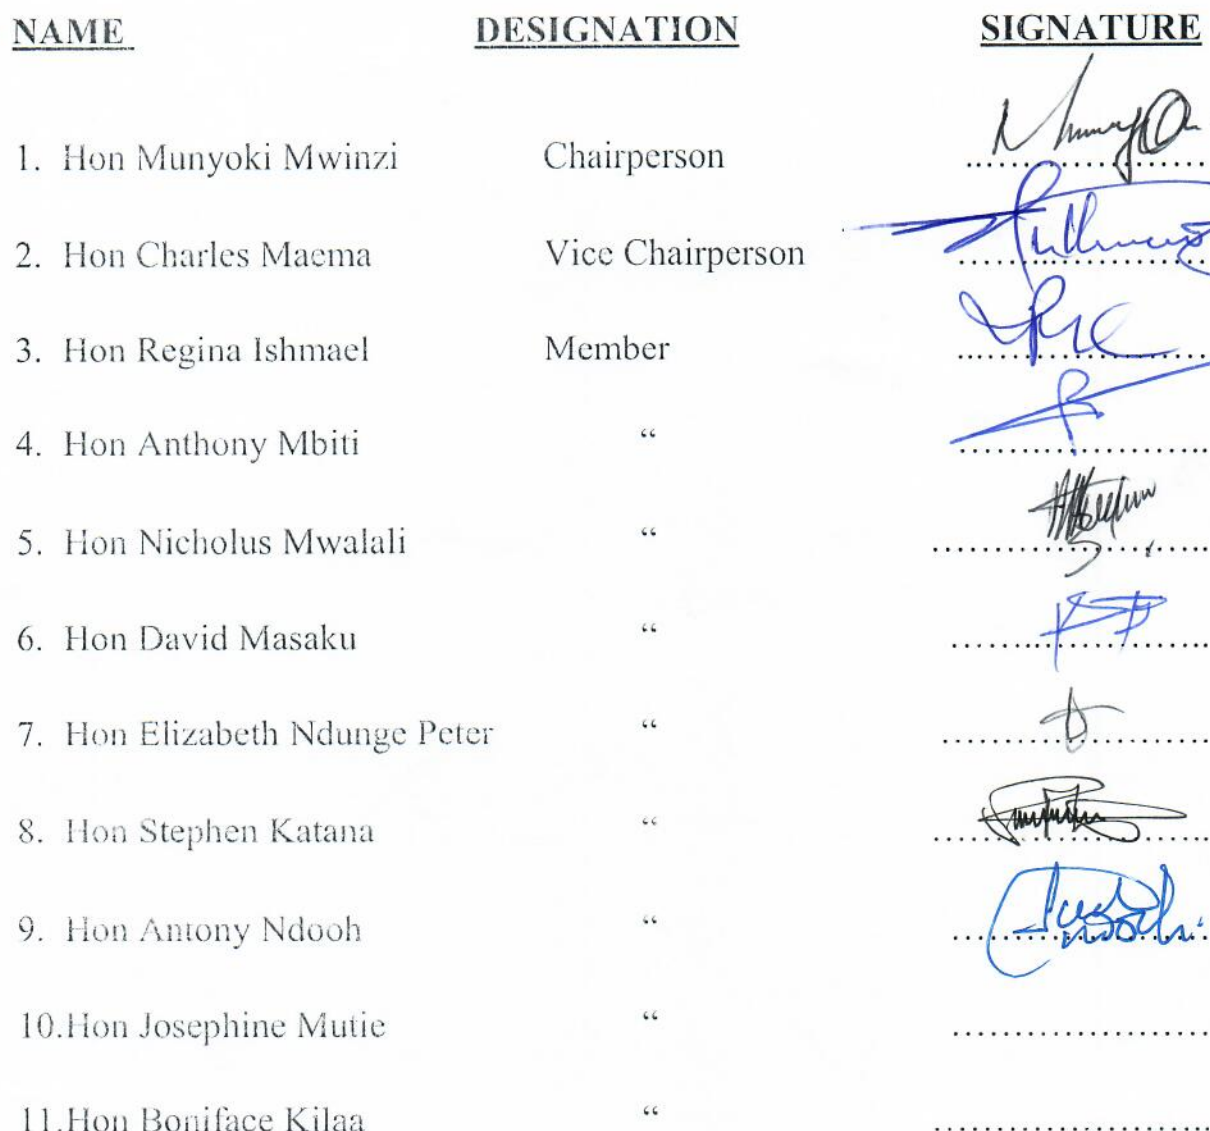 NAME DESIGNATION SIGNATURE
1. Hon Munyoki Mwinzi Chairperson ....................
2. Hon Charles Maema Vice Chairperson ....................
3. Hon Regina Ishmael Member ....................
4. Hon Anthony Mbiti “ ....................
5. Hon Nicholus Mwalali “ ....................
6. Hon David Masaku “ ....................
7. Hon Elizabeth Ndunge Peter “ ....................
8. Hon Stephen Katana “ ....................
9. Hon Antony Ndooh “ ....................
10.Hon Josephine Mutie “ ....................
11.Hon Boniface Kilaa “ ....................